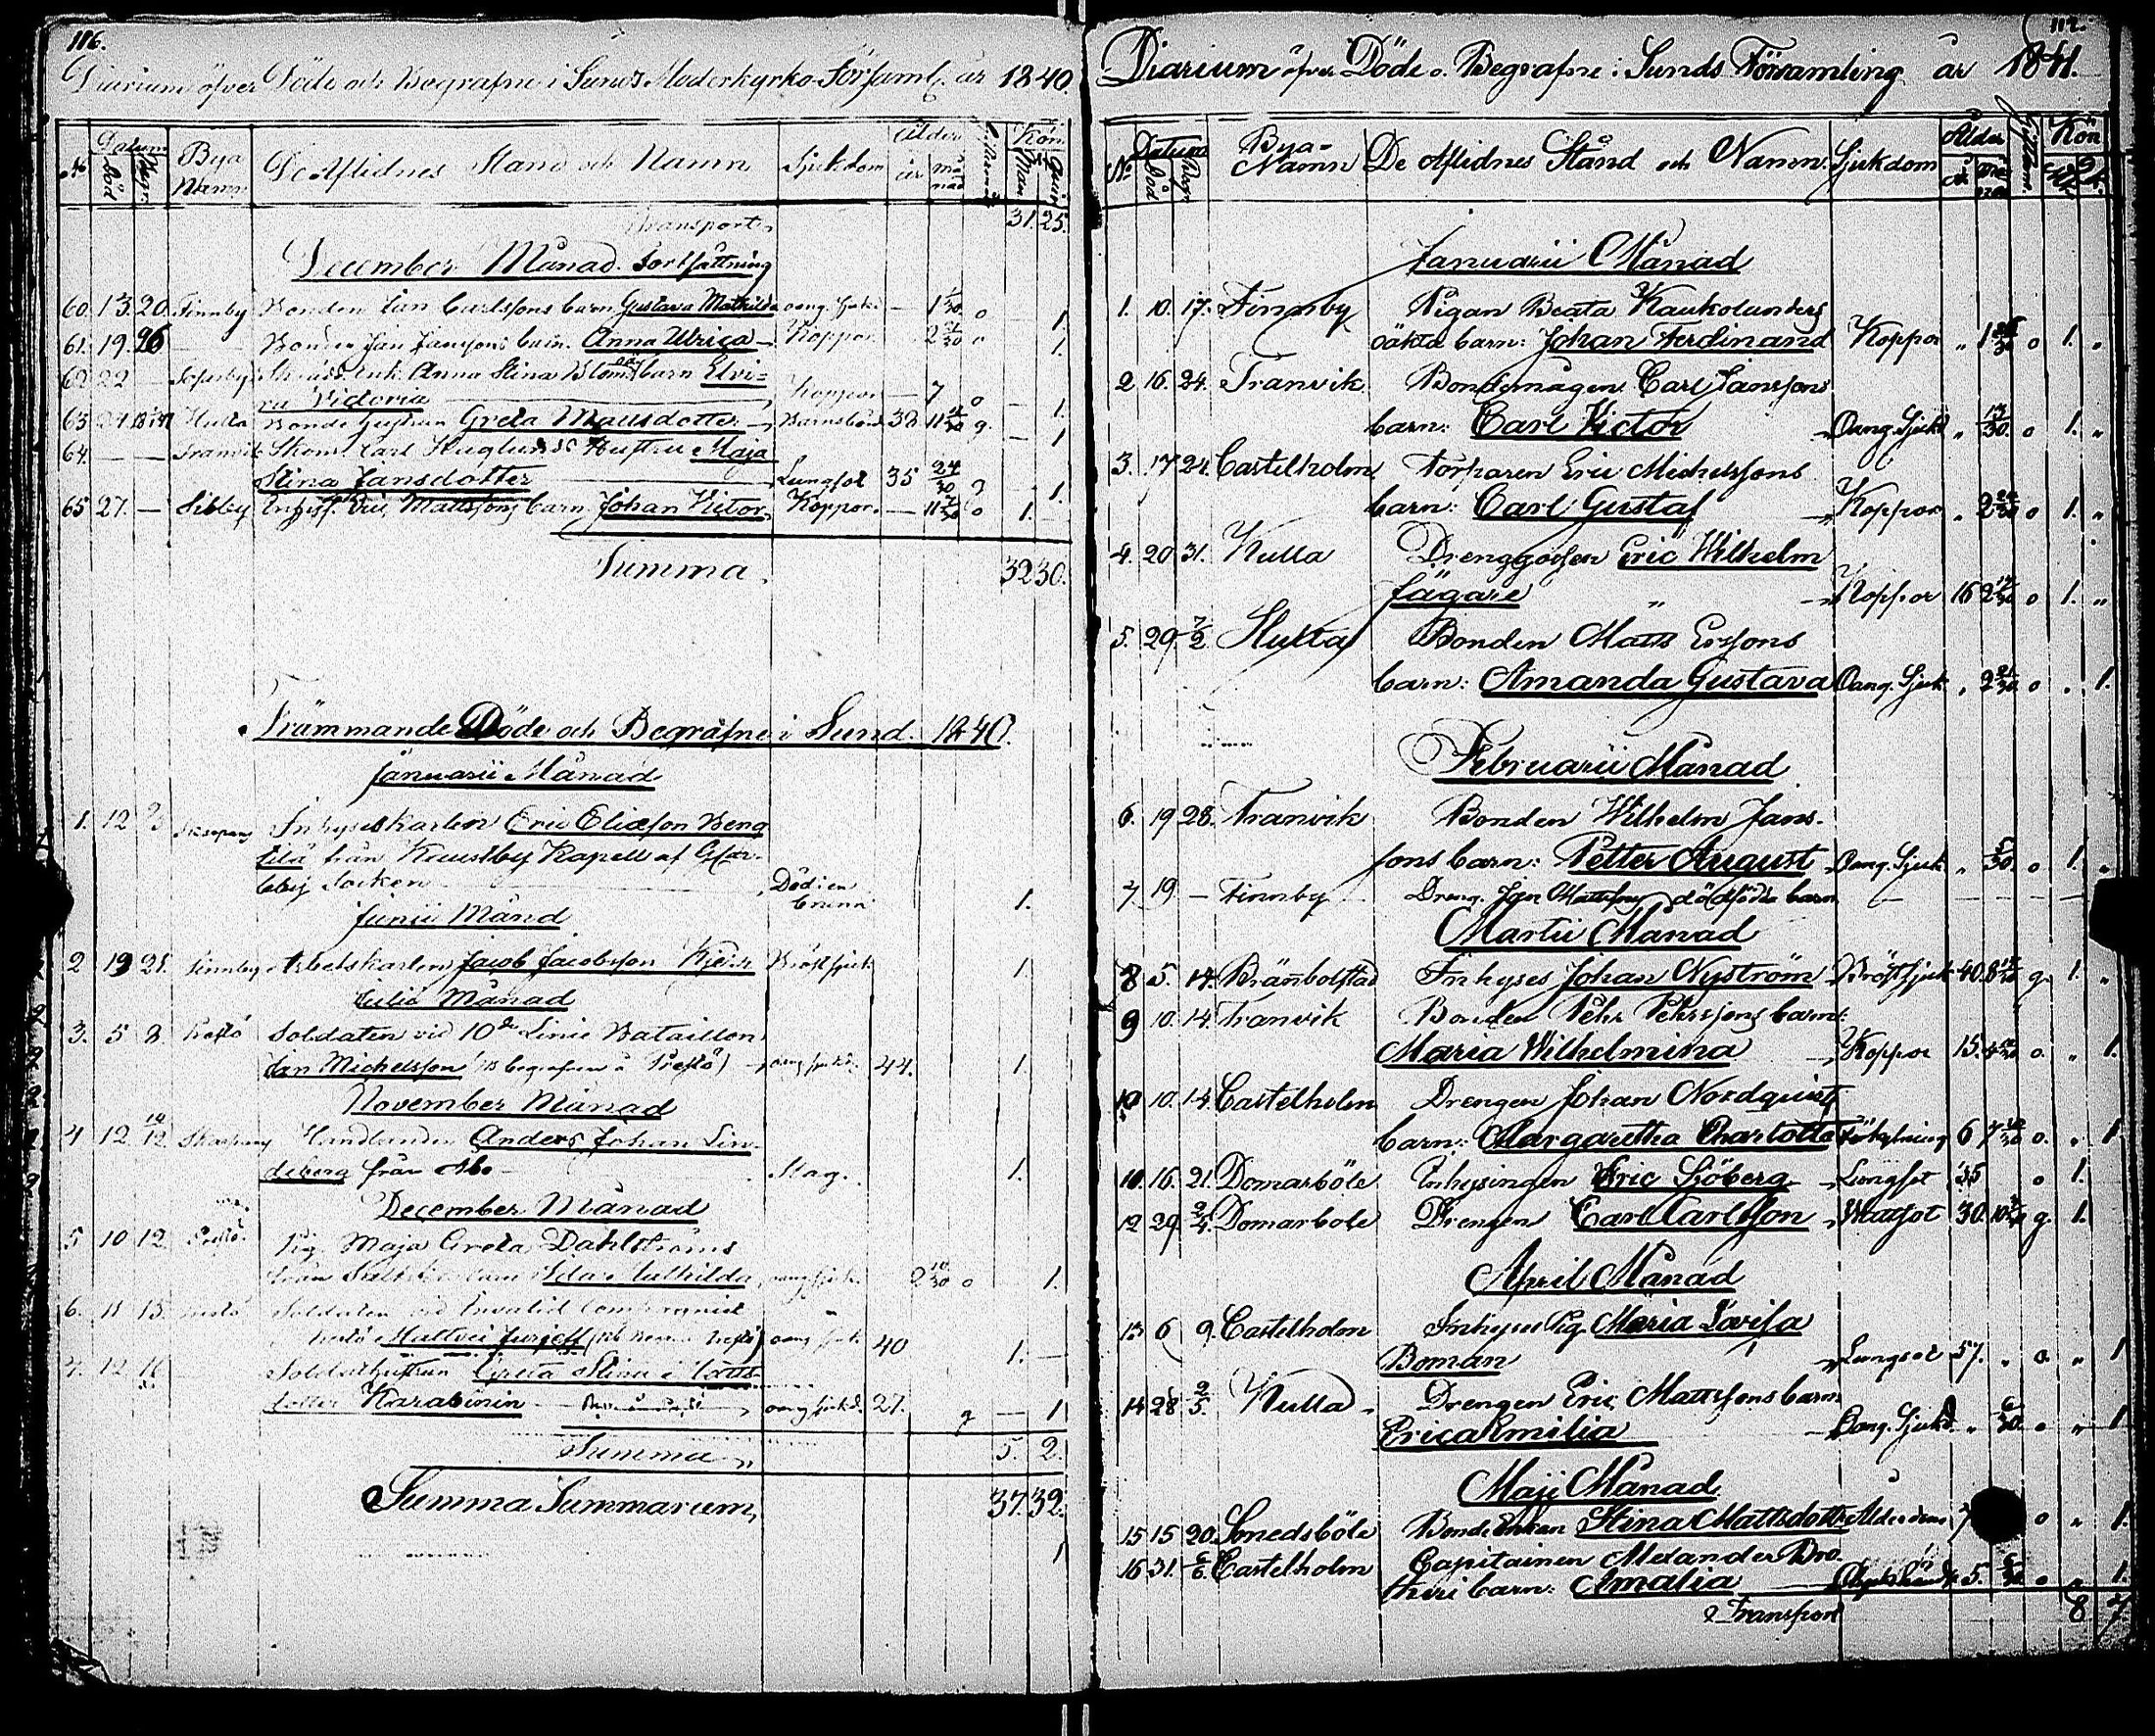 116.
Diarium öfver Döde och Begrafne i Sunds Moderkyrko Församl. år 1840.
No Datum Död Begr. Bya Namn De Aflidnes Stånd och Namn Sjukdom Ålder år månad Kön Man Qvin
Transport 31. 25.
December Månad. Fortsättning
60. 13. 20. Finnby Bonden Jan Carlssons barn Gustava Mathilda oang. sjukd. — 1 1/30 o 1.
61. 19. 26 — Bonden Jan Janssons barn. Anna Ulrica — Koppor — 2 21/30 o 1.
62. 22 — Enk. Anna Stina barn Elvi-
ra Victoria — Koppor — 7 o — 1.
63. 24. Hulta Bonde hustrun Greta Mansdotter — Barnsbörd 38 11 g. — 1
64. — — Tranvik Carl Haglunds Hustru Maja
Stina Jansdotter Lungsot 35 24/30 g — 1.
65 27. — Sibby Eric Mattssons barn Johan Victor Koppor. — 11 o 1. —
Summa. 32 30.
Främmande Döde och Begrafne i Sund. 1840.
Januarii Månad
1. 12 Skarpans Inhyseskarlen Eric Eliæson Beng
från Kapell af
Socken — Död i en
brunn 1.
Junii Månd
2 19 21. Finnby Arbetskarlen Jacob Jacobsson Bröstsjuk 1
Julii Månad
3. 5 8. Prestö Soldaten vid 10de Linie Bataillon
Jan Michelsson (är begrafven å Prestö) — oang sjukd. 44. 1.
November Månad
4 12 Skarpans Handlanden Anders Johan Lin-
deberg från Åbo — Slag. 1.
December Månad
5 10 12. Prestö. Pig. Maja Greta Dahlströms
från barn Ida Mathilda oang sjuk. 2 10/30 o 1.
6. 11 13. Prestö Soldaten vid Invalid Compagniet
å Prestö Mattvei Jurjeff oang sjuk 40 1. —
7. 12 Soldathustrun Greta Stina Matts-
dotter Karabinin — oang sjukd. 27. g — 1
Summa 5. 2.
Summa Summarum, 37. 32.
1
112.
Diarium öfver Döde o. Begrafne i Sunds Församling år 1841.
No Datum Död Begr. Bya-Namn De Aflidnes Stånd och Namn. Sjukdom Ålder Kön
Januarii Månad
1. 10. 17. Finnby Pigan Beata Kaukolunders
oäkta barn: Johan Ferdinand Koppor „ 1 o 1. „
2 16. 24. Tranvik Bondemågen Carl Janssons
barn: Carl Victor — Oang. Sjukd. „ 17/30. o 1. „
3. 17 24. Castelholm Torparen Eric Michelssons
barn: Carl Gustaf — Koppor „ 2 o 1. „
4. 20 31. Kulla Drenggossen Eric Wilhelm
Jägare „ — Koppor 16 2 o 1. „
5. 29. 7/2. Hulta Bonden Matts Erssons
barn: Amanda Gustava Oang. Sjuk „ 2 21/30 o „ 1.
Februarii Månad
6. 19 28. Tranvik Bonden Wilhelm Jans-
sons barn: Petter August Oang. Sjuk „ 5/30. o 1. „
7. 19 — Finnby Dreng. Jan Mattssons dödfödda barn — —
Martii Månad
8 5. 14. Brändbolstad Inhyses Johan Nyström Bröstsjuk 40. 8 g. 1. „
9 10. 14. Tranvik Bonden Pehr Pehrssons barn:
Maria Wilhelmina — Koppor 15. 4 o. „ 1.
10 10. 14. Castelholm Drengen Johan Nordquist
barn: Margaretha Charlotta Förkylning 6 7 o. „ 1
11. 16. 21. Domarböle Inhysingen Eric Sjöberg — Lungsot 35 o 1.
12 29. 2/4. Domarböle Drengen Carl Carlsson — Wattsot 30. 10 g. 1.
April Månad
13 6 9. Castelholm Inhyses Pig. Maria Lovisa
Boman — Lungsot 57. „ o. „ 1
14 28 2/5. Kulla Drengen Eric Mattssons barn.
Erica Emilia — Oang. Sjukd. „ 6/30. o „ 1
Maji Månad
15 15 20. Sonedsböle Bonde Enkan Stina Mattsdotter Ålderdom 7 o „ 1.
16 31. 6/6. Castelholm Capitainen Alexander Bro-
theri barn: Amalia — 5. 6/30 o „ 1.
Transport 8 7